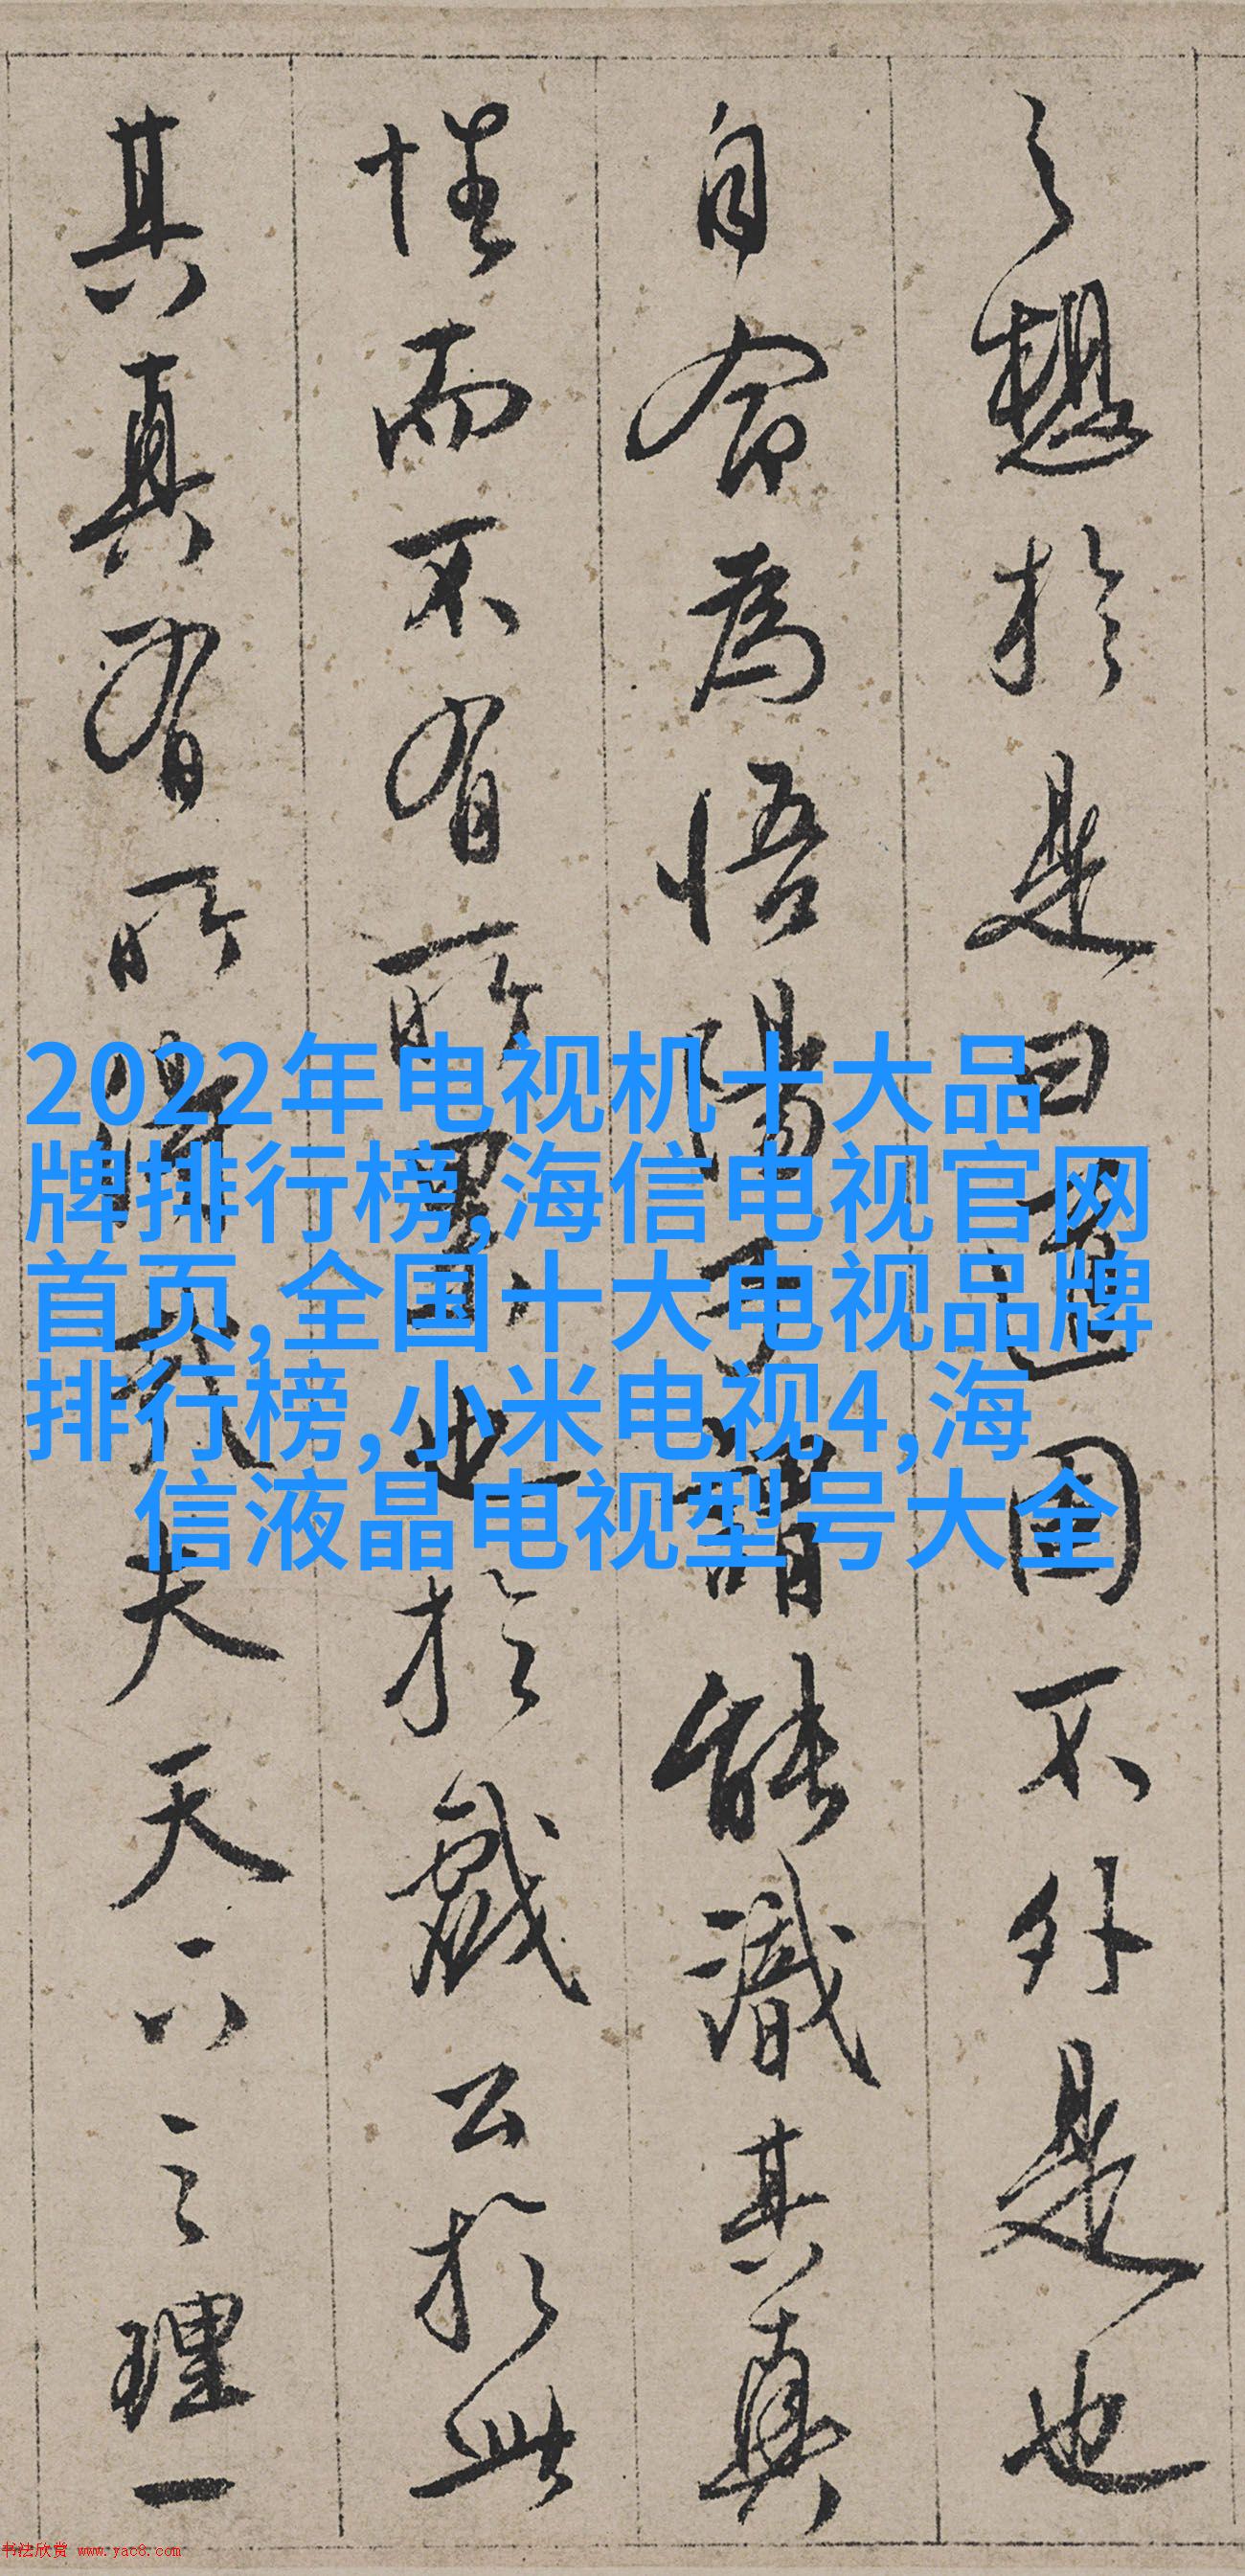 之想於是曰道固不外是也
自命為悟陽予謂能識其真
性而不有所累也於戲公於此
其真有所得哉夫天下之理一
2022年电视机十大品
牌排行榜,海信电视官网
首页,全国十大电视品牌
排行榜,小米电视4,海
信液晶电视型号大全
书法欣赏 www.yac8.com